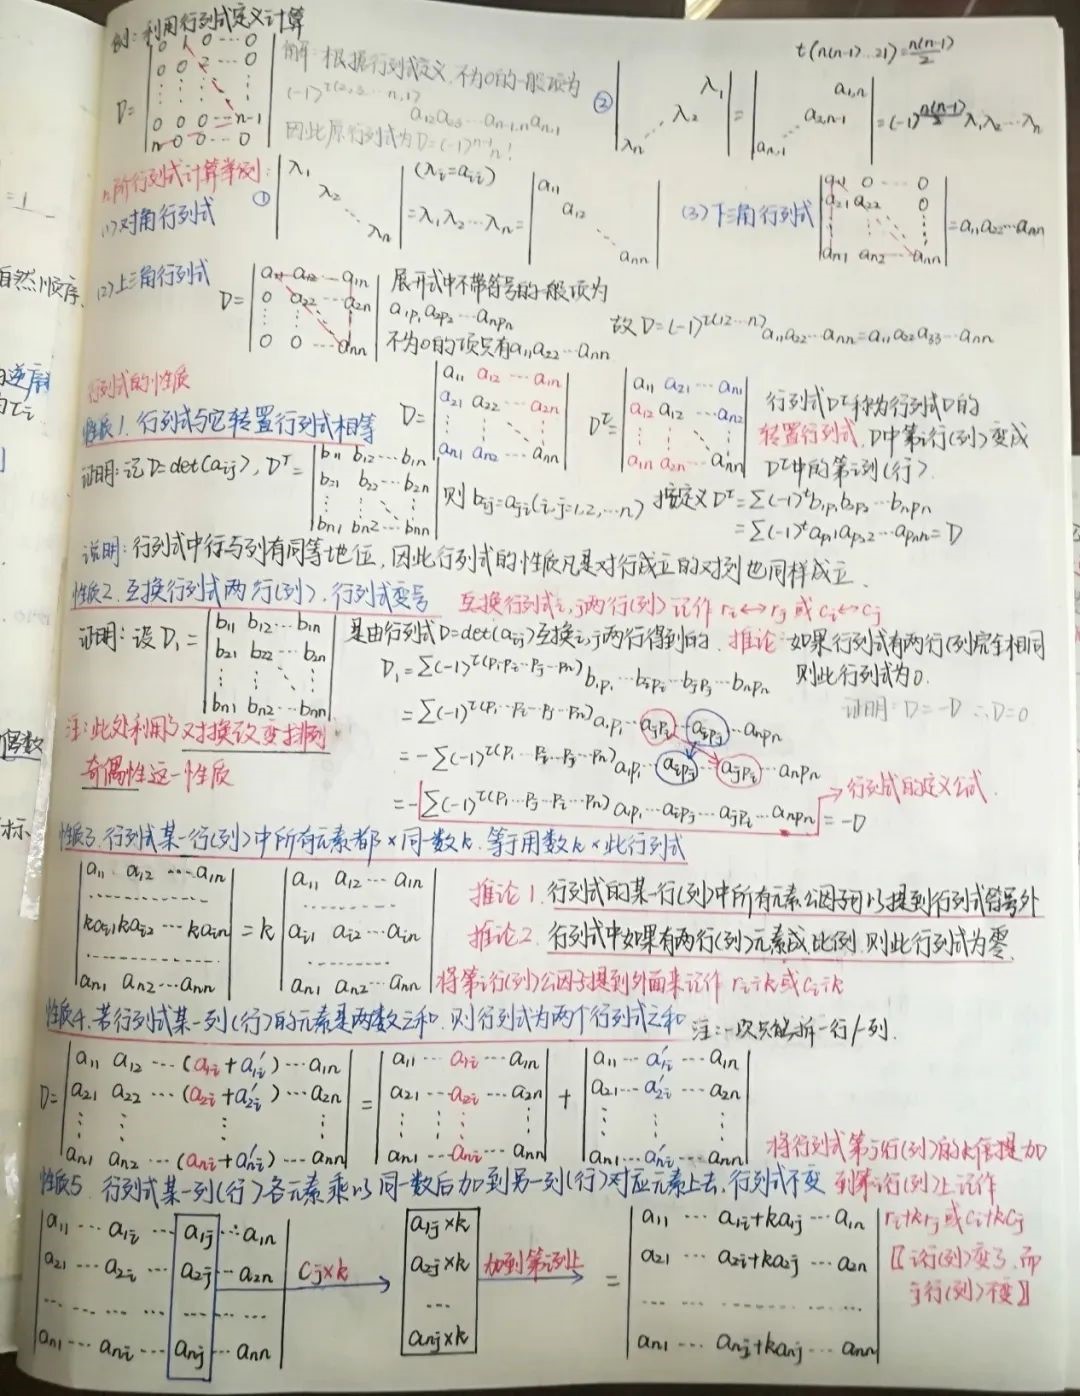 例:利用行列式定义计算
D= | 0 1 0 ⋯ 0 |
| 0 0 2 ⋯ 0 |
| ⋮ ⋮ ⋮ ⋮ |
| 0 0 0 ⋯ n-1 |
| n 0 0 ⋯ 0 |
解:根据行列式定义,不为0的一般项为
(-1)^t(2,3⋯n,1) a12a23⋯an-1,nan,1
因此原行列式为D=(-1)^n-1 n!
t(n(n-1)…21)=n(n-1)/2
② | λ1 λ2 ⋰ λn | = | a1,n a2,n-1 ⋰ an,1 | =(-1)^n(n-1)/2 λ1λ2⋯λn
n阶行列式计算举例:
(1)对角行列式
① | λ1 λ2 ⋱ λn | (λi=aii) =λ1λ2⋯λn= | a11 a12 ⋱ ann |
(3)下三角行列式 | a11 0 ⋯ 0 |
| a21 a22 0 |
| ⋮ ⋮ |
| an1 an2 ⋯ ann | =a11a22⋯ann
(2)上三角行列式 D= | a11 a12 ⋯ a1n |
| 0 a22 ⋯ a2n |
| ⋮ ⋮ ⋮ |
| 0 0 ⋯ ann |
展开式中不带符号的一般项为
a1p1a2p2⋯anpn
不为0的项只有a11a22⋯ann
故D=(-1)^t(12⋯n) a11a22⋯ann=a11a22a33⋯ann
行列式的性质
性质1.行列式与它转置行列式相等
D= | a11 a12 ⋯ a1n |
| a21 a22 ⋯ a2n |
| ⋮ ⋮ ⋱ |
| an1 an2 ⋯ ann |
D^T= | a11 a21 ⋯ an1 |
| a12 a12 ⋯ an2 |
| ⋮ ⋮ ⋱ |
| a1n a2n ⋯ ann |
行列式D^T称为行列式D的
转置行列式.D中第i行(列)变成
D^T中的第i列(行).
证明:记D=det(aij), D^T= | b11 b12⋯b1n |
| b21 b22⋯b2n |
| ⋮ ⋮ ⋱ |
| bn1 bn2⋯bnn |
则bij=aji(i,j=1,2,…n) 按定义D^T=∑(-1)^t b1p1b2p2⋯bnpn
=∑(-1)^t ap11ap22⋯apnn=D
说明:行列式中行与列有同等地位,因此行列式的性质凡是对行成立的对列也同样成立.
性质2.互换行列式两行(列),行列式变号 互换行列式i,j两行(列)记作 ri↔rj 或 ci↔cj
证明:设D1= | b11 b12⋯b1n |
| b21 b22⋯b2n |
| ⋮ ⋮ ⋱ ⋮ |
| bn1 bn2⋯bnn |
是由行列式D=det(aij)互换i,j两行得到的.
推论 如果行列式有两行(列)完全相同
则此行列式为0.
证明:D=-D ∴D=0
D1=∑(-1)^t(p1⋯pi⋯pj⋯pn) b1p1⋯bipi⋯bjpj⋯bnpn
=∑(-1)^t(p1⋯pi⋯pj⋯pn) a1p1⋯ajpi⋯aipj⋯anpn
=-∑(-1)^t(p1⋯pi⋯pj⋯pn) a1p1⋯aipj⋯ajpi⋯anpn
=-∑(-1)^t(p1⋯pj⋯pi⋯pn) a1p1⋯aipj⋯ajpi⋯anpn=-D
行列式的定义公式.
注:此处利用了对换改变排列
奇偶性这一性质
性质3.行列式某一行(列)中所有元素都×同一数k.等于用数k×此行列式
| a11 a12 ⋯ a1n |
| ⋯⋯⋯ |
| kai1 kai2 ⋯ kain |
| ⋯⋯⋯ |
| an1 an2⋯ann |
=k | a11 a12⋯a1n |
| ⋯⋯⋯ |
| ai1 ai2⋯ain |
| ⋯⋯⋯ |
| an1 an2⋯ann |
推论1.行列式的某一行(列)中所有元素公因子可以提到行列式符号外
推论2.行列式中如果有两行(列)元素成比例.则此行列式为零.
将第i行(列)公因子提到外面来记作 ri÷k或ci÷k
性质4.若行列式某一列(行)的元素是两数之和.则行列式为两个行列式之和 注:一次只能拆一行/一列.
D= | a11 a12 ⋯ (a1i+a1i′)⋯a1n |
| a21 a22 ⋯ (a2i+a2i′)⋯a2n |
| ⋮ ⋮ ⋮ ⋮ |
| an1 an2 ⋯ (ani+ani′)⋯ann |
= | a11⋯a1i⋯a1n |
| a21⋯a2i⋯a2n |
| ⋮ ⋮ ⋮ |
| an1⋯ani⋯ann |
+ | a11⋯a1i′⋯a1n |
| a21⋯a2i′⋯a2n |
| ⋮ ⋮ ⋮ |
| an1⋯ani′⋯ann |
性质5.行列式某一列(行)各元素乘以同一数后加到另一列(行)对应元素上去,行列式不变
将行列式第j行(列)的k倍提加
到第i行(列)上记作
ri+krj或ci+kcj
【i行(列)变了,而
j行(列)不变】
| a11 ⋯ a1i ⋯ a1j ⋯ a1n |
| a21 ⋯ a2i ⋯ a2j ⋯ a2n |
| ⋯ ⋯ ⋯ ⋯ |
| an1 ⋯ ani ⋯ anj ⋯ ann |
cj×k
a1j×k
a2j×k
⋯
anj×k
加到第i列上
= | a11 ⋯ a1i+ka1j⋯a1n |
| a21 ⋯ a2i+ka2j⋯a2n |
| ⋯ ⋯ ⋯ |
| an1 ⋯ ani+kanj⋯ann |
=1
自然顺序
偶数
标、